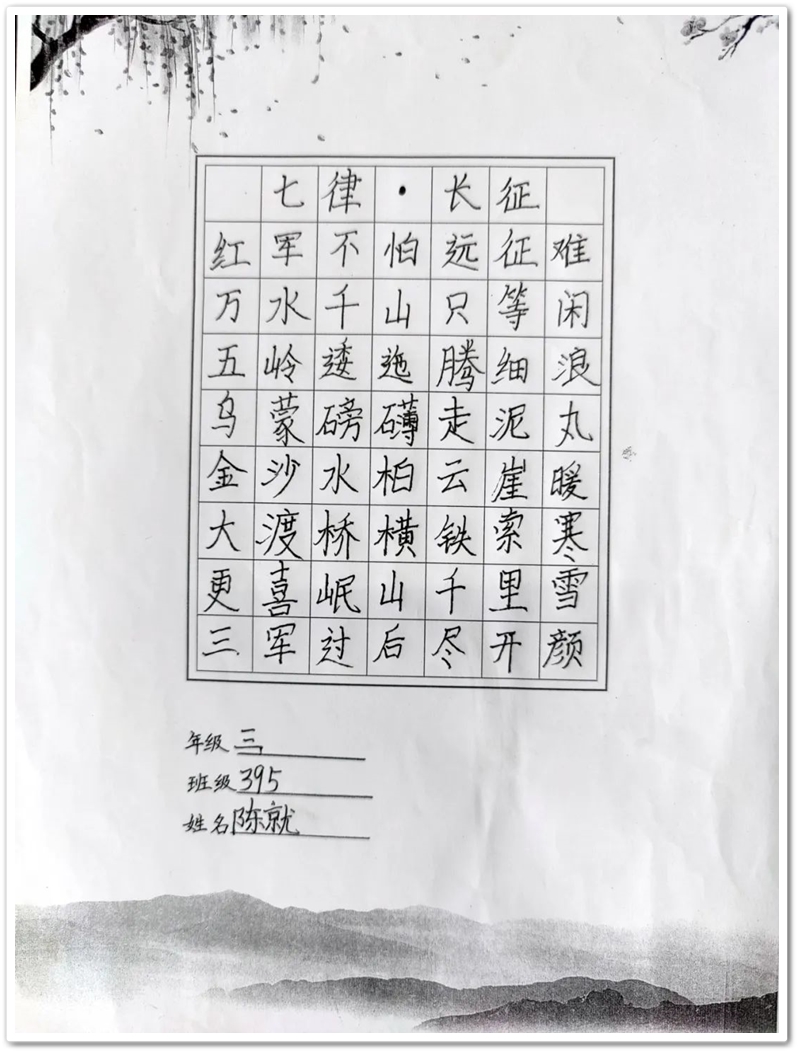 七律·长征
红军不怕远征难
万水千山只等闲
五岭逶迤腾细浪
乌蒙磅礴走泥丸
金沙水柏云崖暖
大渡桥横铁索寒
更喜岷山千里雪
三军过后尽开颜
年级 三
班级 395
姓名 陈就